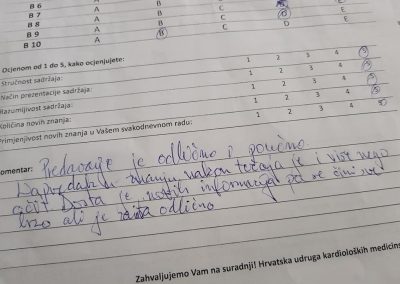 B 6 A B D E
B 7 A B C D E
B 8 A B C D E
B 9 A B C D E
B 10
Ocjenom od 1 do 5, kako ocjenjujete:
Stručnost sadržaja: 1 2 3 4 5
Način prezentacije sadržaja: 1 2 3 4 5
Razumljivost sadržaja: 1 2 3 4 5
Količina novih znanja: 1 2 3 4 5
Primjenjivost novih znanja u Vašem svakodnevnom radu: 1 2 3 4 5
omentar: Predavanje je odlično i poučno
Napredak u znanju nakon tečaja je i više nego
očit Dosta je novih informacija pa se čini
brzo ali je zaista odlično
Zahvaljujemo Vam na suradnji! Hrvatska udruga kardioloških medicins